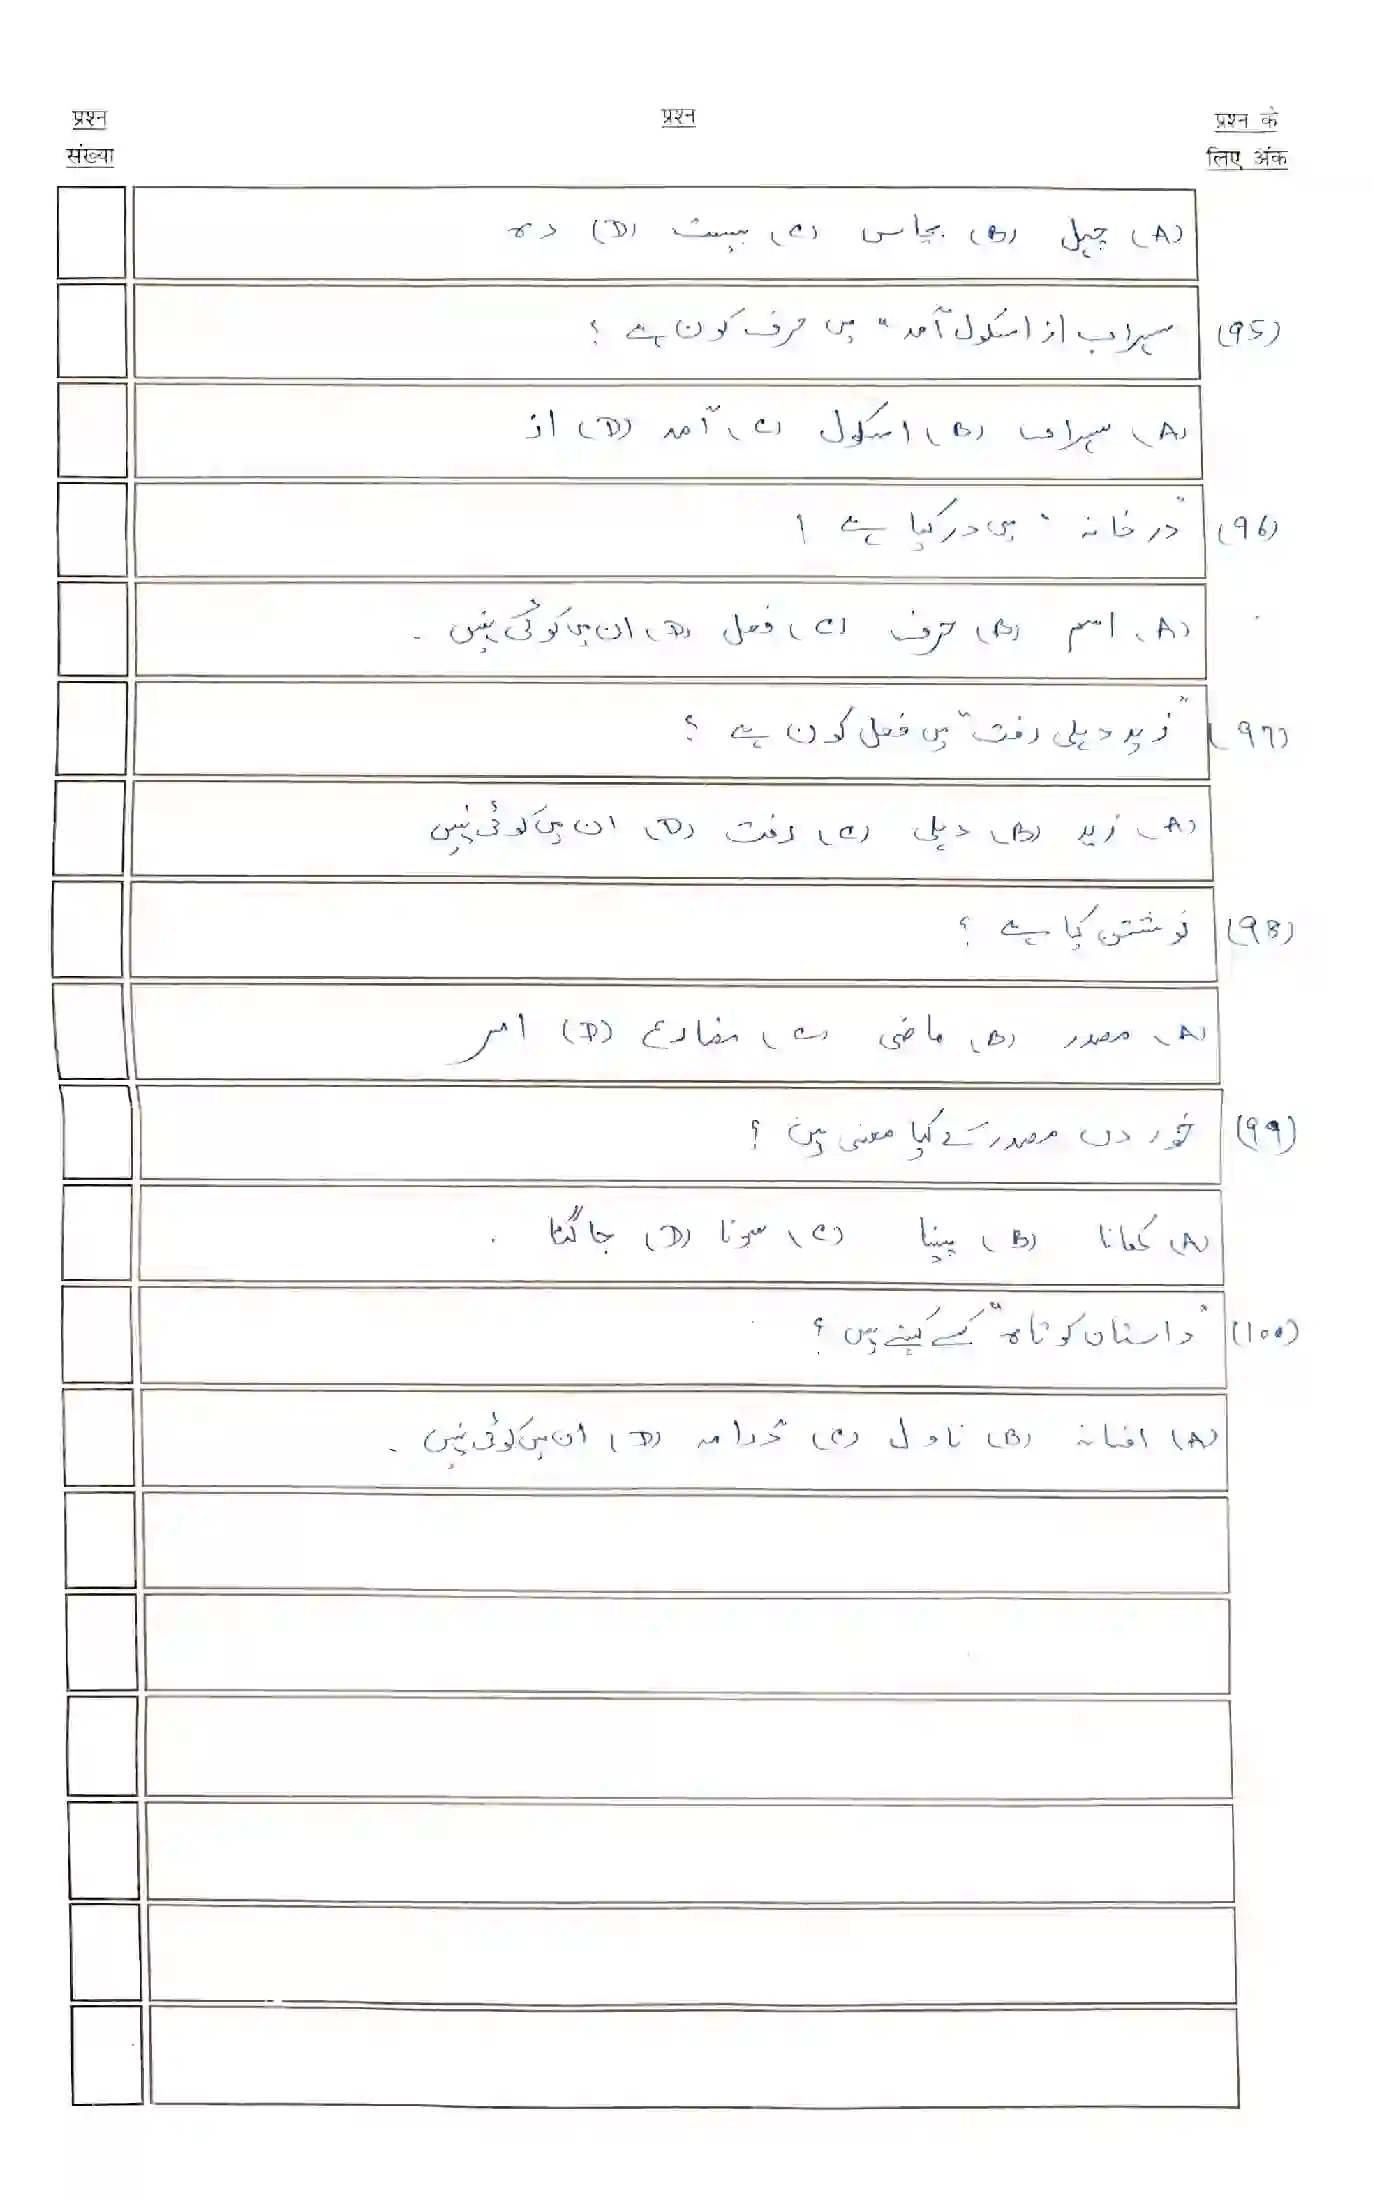 प्रश्न संख्या
प्रश्न
प्रश्न के लिए अंक
(A) چہل (B) پچاس (C) بیست (D) دہ
(95) سہراب از اسکول آمد" میں حرف کون ہے ؟
(A) سہراب (B) اسکول (C) آمد (D) از
(96) "در خانہ" میں در کیا ہے ؟
(A) اسم (B) حرف (C) فعل (D) ان میں کوئی نہیں۔
(97) "زید دہلی رفت" میں فعل کون ہے ؟
(A) زید (B) دہلی (C) رفت (D) ان میں کوئی نہیں
(98) نوشتن کیا ہے ؟
(A) مصدر (B) ماضی (C) مضارع (D) امر
(99) خوردن مصدر کے کیا معنی ہیں ؟
(A) کھانا (B) پینا (C) سونا (D) جاگنا ۔
(100) "داستان کوتاہ" کسے کہتے ہیں ؟
(A) افسانہ (B) ناول (C) ڈرامہ (D) ان میں کوئی نہیں۔